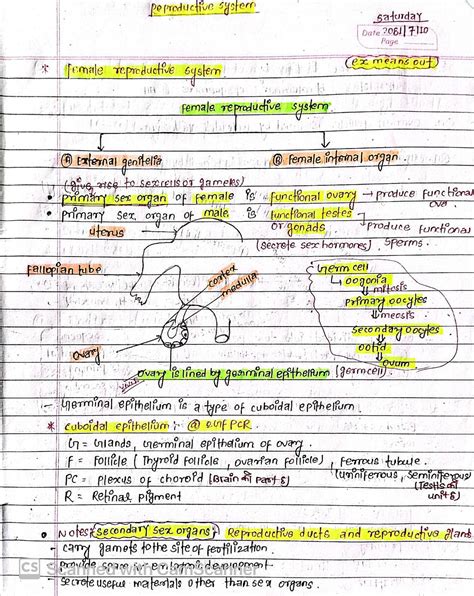 Reproductive system
Saturday
Date 2081/7/10
Page
(ex means out)
* Female reproductive system
Female reproductive system
Ⓐ External genitelia
Ⓑ Female internal organ.
(Give rise to sex cells or gametes)
• primary sex organ of female is functional ovary → produce functional ova.
• primary sex organ of male is functional testes or gonads → produce functional sperms.
(Secrete sex hormones)
uterus
fallopian tube
cortex
medulla
ovary
Germ cell
↳ oogonia
⇓ mitosis
primary oocytes
⇓ meosis
secondary oocytes
ootid
ovum
ovary is lined by germinal epithelium (germ cell).
V.V.I
- Germinal epithelium is a type of cuboidal epithelium.
* cuboidal epithelium: @ GF PCR
G = Glands, Germinal epithelium of ovary.
F = Follicle (Thyroid follicle, ovarian follicle), Ferrous tubule.
(uriniferous, seminiferous)
PC = plexus of choroid (Brain को part 8)
(Testis को unit 8)
R = Retinal pigment
• Notes: Secondary sex organs: Reproductive ducts and reproductive gland.
- carry gamets to the site of fertilization.
- provide space for embryonic development
- Secrete useful materials other than sex organs.
CS Scanned with CamScanner